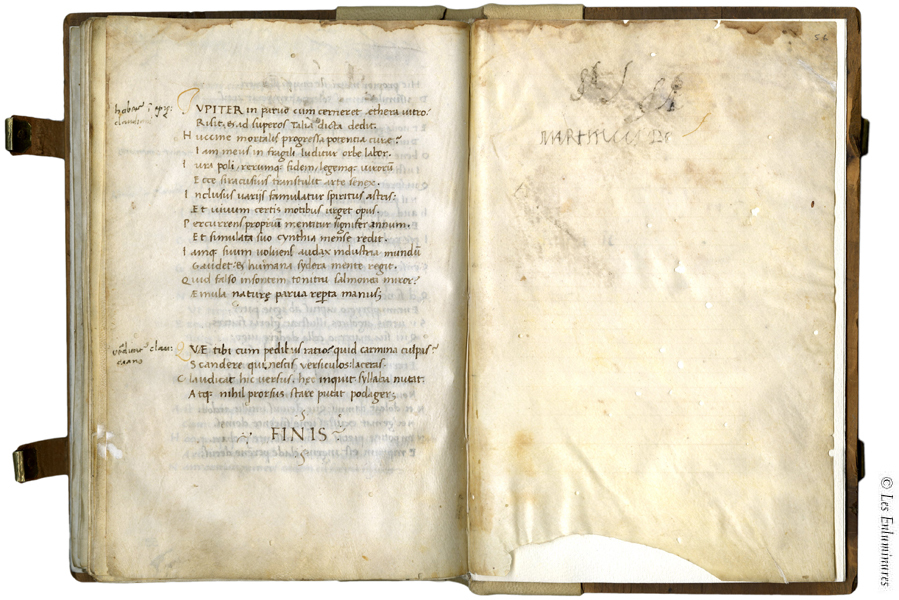 IVPITER in paruo cum cerneret æthera uitro:
Risit, & ad superos talia dicta dedit.
Huccine mortalis progressa potentia curæ?
Iam meus in fragili luditur orbe labor.
Iura poli, rerumq; fidem, legemq; uirorū
Ecce siracusius transtulit arte senex.
Inclusus uarijs famulatur spiritus astris:
Æt uiuum certis motibus urget opus.
Percurrens propriū mentitur signifer annum.
Et simulata suo cynthia mense redit.
Iamq; suum uoluens audax industria mundū
Gaudet: & humana sydera mente regit.
Quid falso insontem tonitru salmonea miror?
Æmula naturę parua reperta manus;
QVÆ tibi cum pedibus ratio? quid carmina culpas?
Scandere qui nescis, uersiculos laceras.
Claudicat hic uersus, hęc inquit syllaba nutat.
Atq; nihil prorsus stare putat podager;
FINIS
56
© Les Enluminures